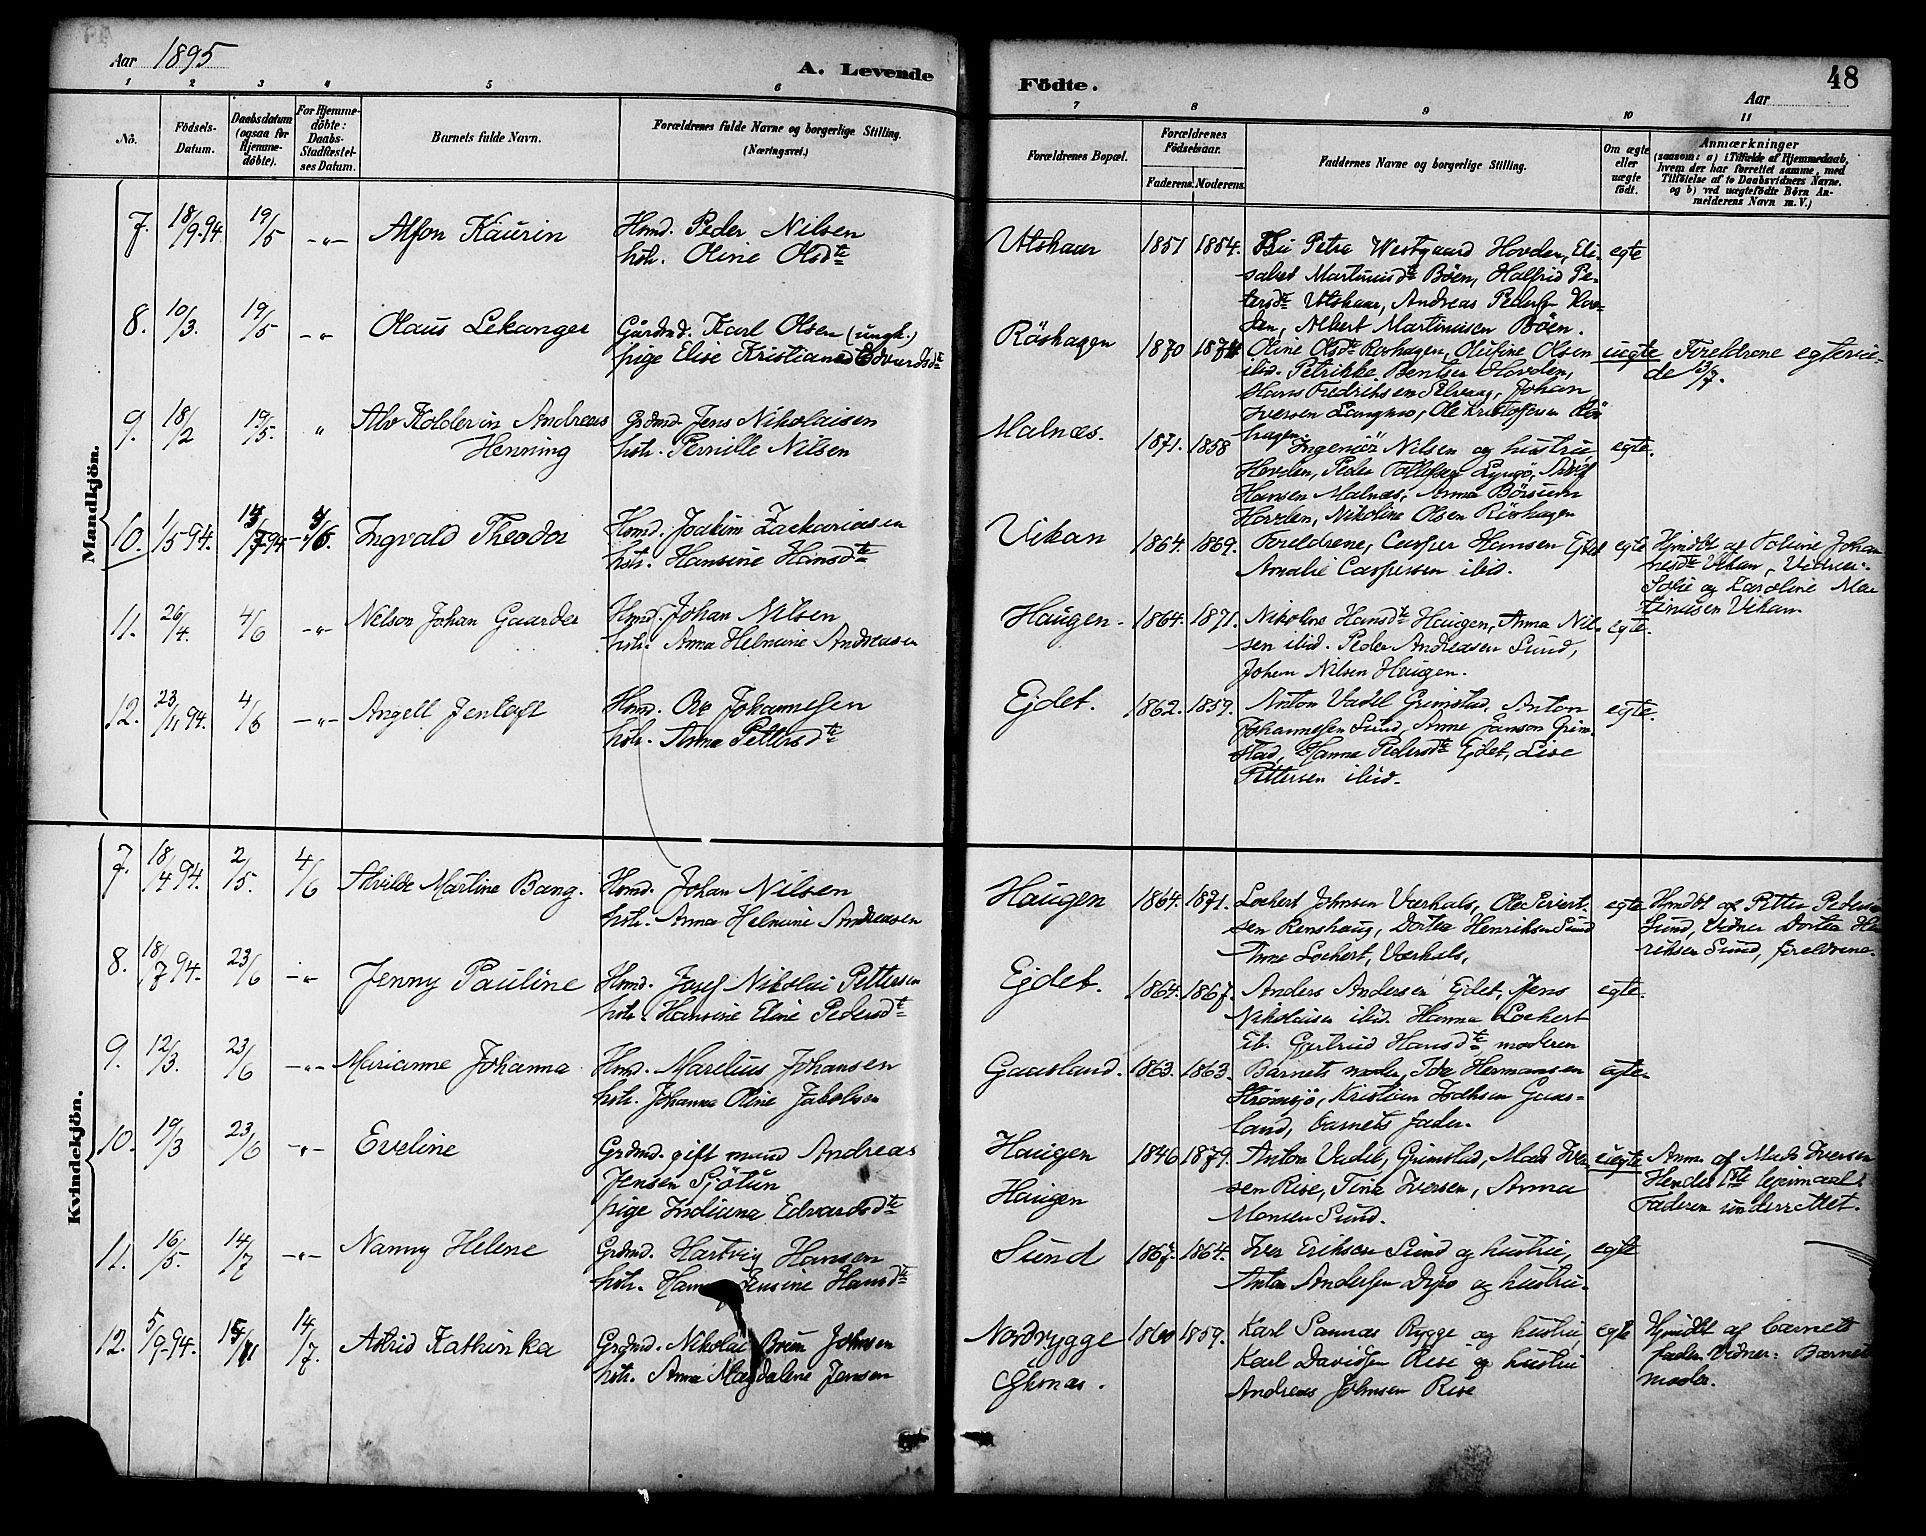 Aar 1895
A. Levende
Födte.
48
Aar
1 2 3 4 5 6
7 8 9 10 11
No.
Födsels-
Datum.
Daabsdatum
(ogsaa for
Hjemme-
döbte).
For Hjemme-
döbte:
Daabs-
Stadfæstel-
ses Datum.
Barnets fulde Navn.
Forældrenes fulde Navne og borgerlige Stilling.
(Næringsvei.)
Forældrenes Bopæl.
Forældrenes
Födselsaar.
Faderens. Moderens.
Faddernes Navne og borgerlige Stilling.
Om ægte
eller
uægte
födt.
Anmærkninger
(saasom: a) i Tilfælde af Hjemmedaab,
hvem der har forrettet samme, med
Tilföielse af to Daabsvidners Navne,
og b) ved uægtefödte Börn An-
melderens Navn m. V.)
Mandkjön.
7. 18/9.94. 19/5 -"- Alfon Kaurin
Hsmd. Peder Nilsen
hstr. Oline Olsdte
Utskaar 1851 1854.
Petra Westgaard Hovden, Eli-
sabet Martinusdte Böen, Halfrid Pe-
tersdte Utskaar, Andreas Hov-
den, Albert Martinusen Böen.
egte
8. 10/3. 19/5 -"- Olaus Lekanger
Gårdmd. Karl Olsen (ungk.)
pige Elise Kristiane Edvardsdte
Röshagen 1870 1874
Oline Olsdte Röshagen, Olufine Olsen
ibid. Petrikke Bentsen Hovden,
Hans Fredriksen Johan
Iversen Ole Kristofersen Rös
hagen
uegte
Foreldrene egtevie-
de 3/7.
9. 18/2 19/5. " Alv Kolderin Andreas
Henning
Grdmd. Jens Nikolaisen
hstr. Pernille Nilsen
Malnæs. 1871. 1858
Ingeniör Nilsen og hustru
Hovden, Peder Tollefsen
Hansen Malnæs, Anna Börsum
Hovden, Nikoline Olsen Röshagen
egte.
10. 1/5 94. 94 Ingvald Theodor
Hsmd. Joakim Zackariasen
hstr. Hansine Hansdte
Vikan 1864. 1869.
Foreldrene, Casper Hansen Ejdet
Amalie Caspersen ibid.
egte
Hjmdbt af Johan
nesdte Vikan, Vidner:
Sofie og Karoline Mar
tinusen Vikan.
11. 26/4. 4/6 -"- Nelson Johan Gaarder
Hsmd. Johan Nilsen
hstr. Anna Helmine Andreasen
Haugen 1864. 1871.
Nikoline Hansdte Haugen, Anna Nil-
sen ibid. Peder Andreasen Sund,
Johan Nilsen Haugen.
egte.
12. 23/11 94. 4/6 -"- Angell Jentoft
Hsmd. Ole Johannesen
hstr. Anna Pettersdte
Ejdet. 1862. 1859.
Anton Vadel Grimstad, Anton
Johannessen Sund, Anne Janson Grim-
stad, Hanna Pedersdte Ejdet, Lise
Pettersen ibid.
egte.
Kvindekjön.
7. 18/4 94. 2/5. 4/6 Alvilde Martine Bang.
Hsmd. Johan Nilsen
hstr. Anna Helmine Andreasen
Haugen 1864. 1871.
Lockert Johnsen Værhals, Ole Sivert-
sen Renshaug, Dortea Henriksen Sund
Anne Lockert, Værhals,
egte
Hmdbt af Petter Peders
Sund, Vidner Dortea Hen
riksen Sund, foreldrene.
8. 18/7 94. 23/6 -"- Jenny Pauline
Hsmd. Josef Nikolai Pettersen
hstr. Hansine Eline Pedersdte
Ejdet. 1864. 1867.
Anders Andersen Ejdet, Jens
Nikolaisen ibid. Hanna Lockert
ib. Gjertrud Hansdte, moderen
egte.
9. 12/3. 23/6 -"- Marianne Johanna
Hsmd. Marelius Johansen
hstr. Johanna Oline Jakobsen
Gaasland. 1863. 1863.
Barnets moder, Ida Hermansen
Strömsjö, Kristian Gaas-
land, barnets fader.
egte-
10. 19/3 23/6 -"- Eveline
Grdmd. gift mand Andreas
Jensen Sjötun
pige Indiana Edvardsdte
Haugen
Haugen
1846 1879.
Anton Vadel, Grimstad, Mads Iver-
sen Rise, Tina Iversen, Anna
Monsen Sund.
uegte
Anm. af Mads Iversen
Hendes 1ste leiermaal.
Faderen underrettet.
11. 16/5. 14/7 -"- Nanny Helene
Grdmd. Hartvig Hansen
hstr. Hanna Jensine Hansdte
Sund 1867. 1864.
Iver Eriksen Sund og hustru,
Anton Andersen og hustru.
egte
12. 5/9-94. 14/7. Astrid Kathinka
Grdmd. Nikolai Brun Johnsen
hstr. Anna Magdalene Jensen
Nordrygge
1859.
Karl Sannæs Rygge og hustru,
Karl Davidsen Rise og hustru
Andreas Johnsen Rise
egte
Hjmdbt af barnets
fader. Vidner: Barnets
moder.